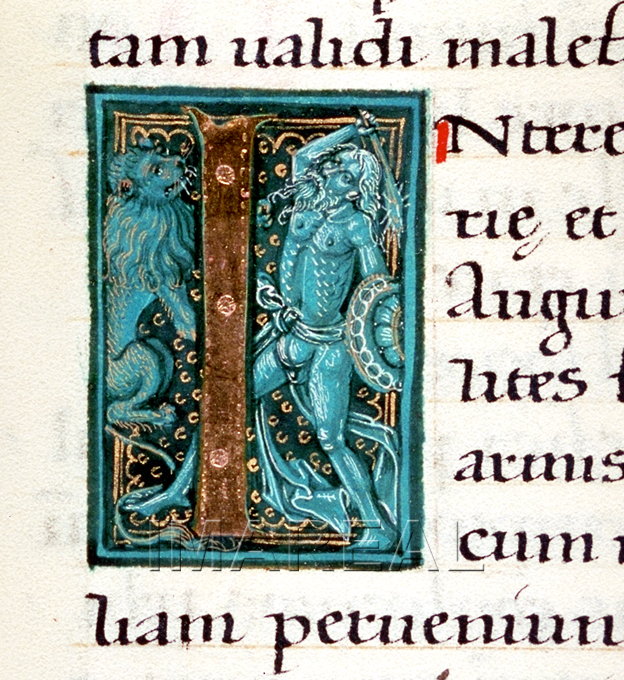 tam ualidi malef
INtere
rię et
Augu
lites f
armis
cum
liam perueniun
IMAREAL